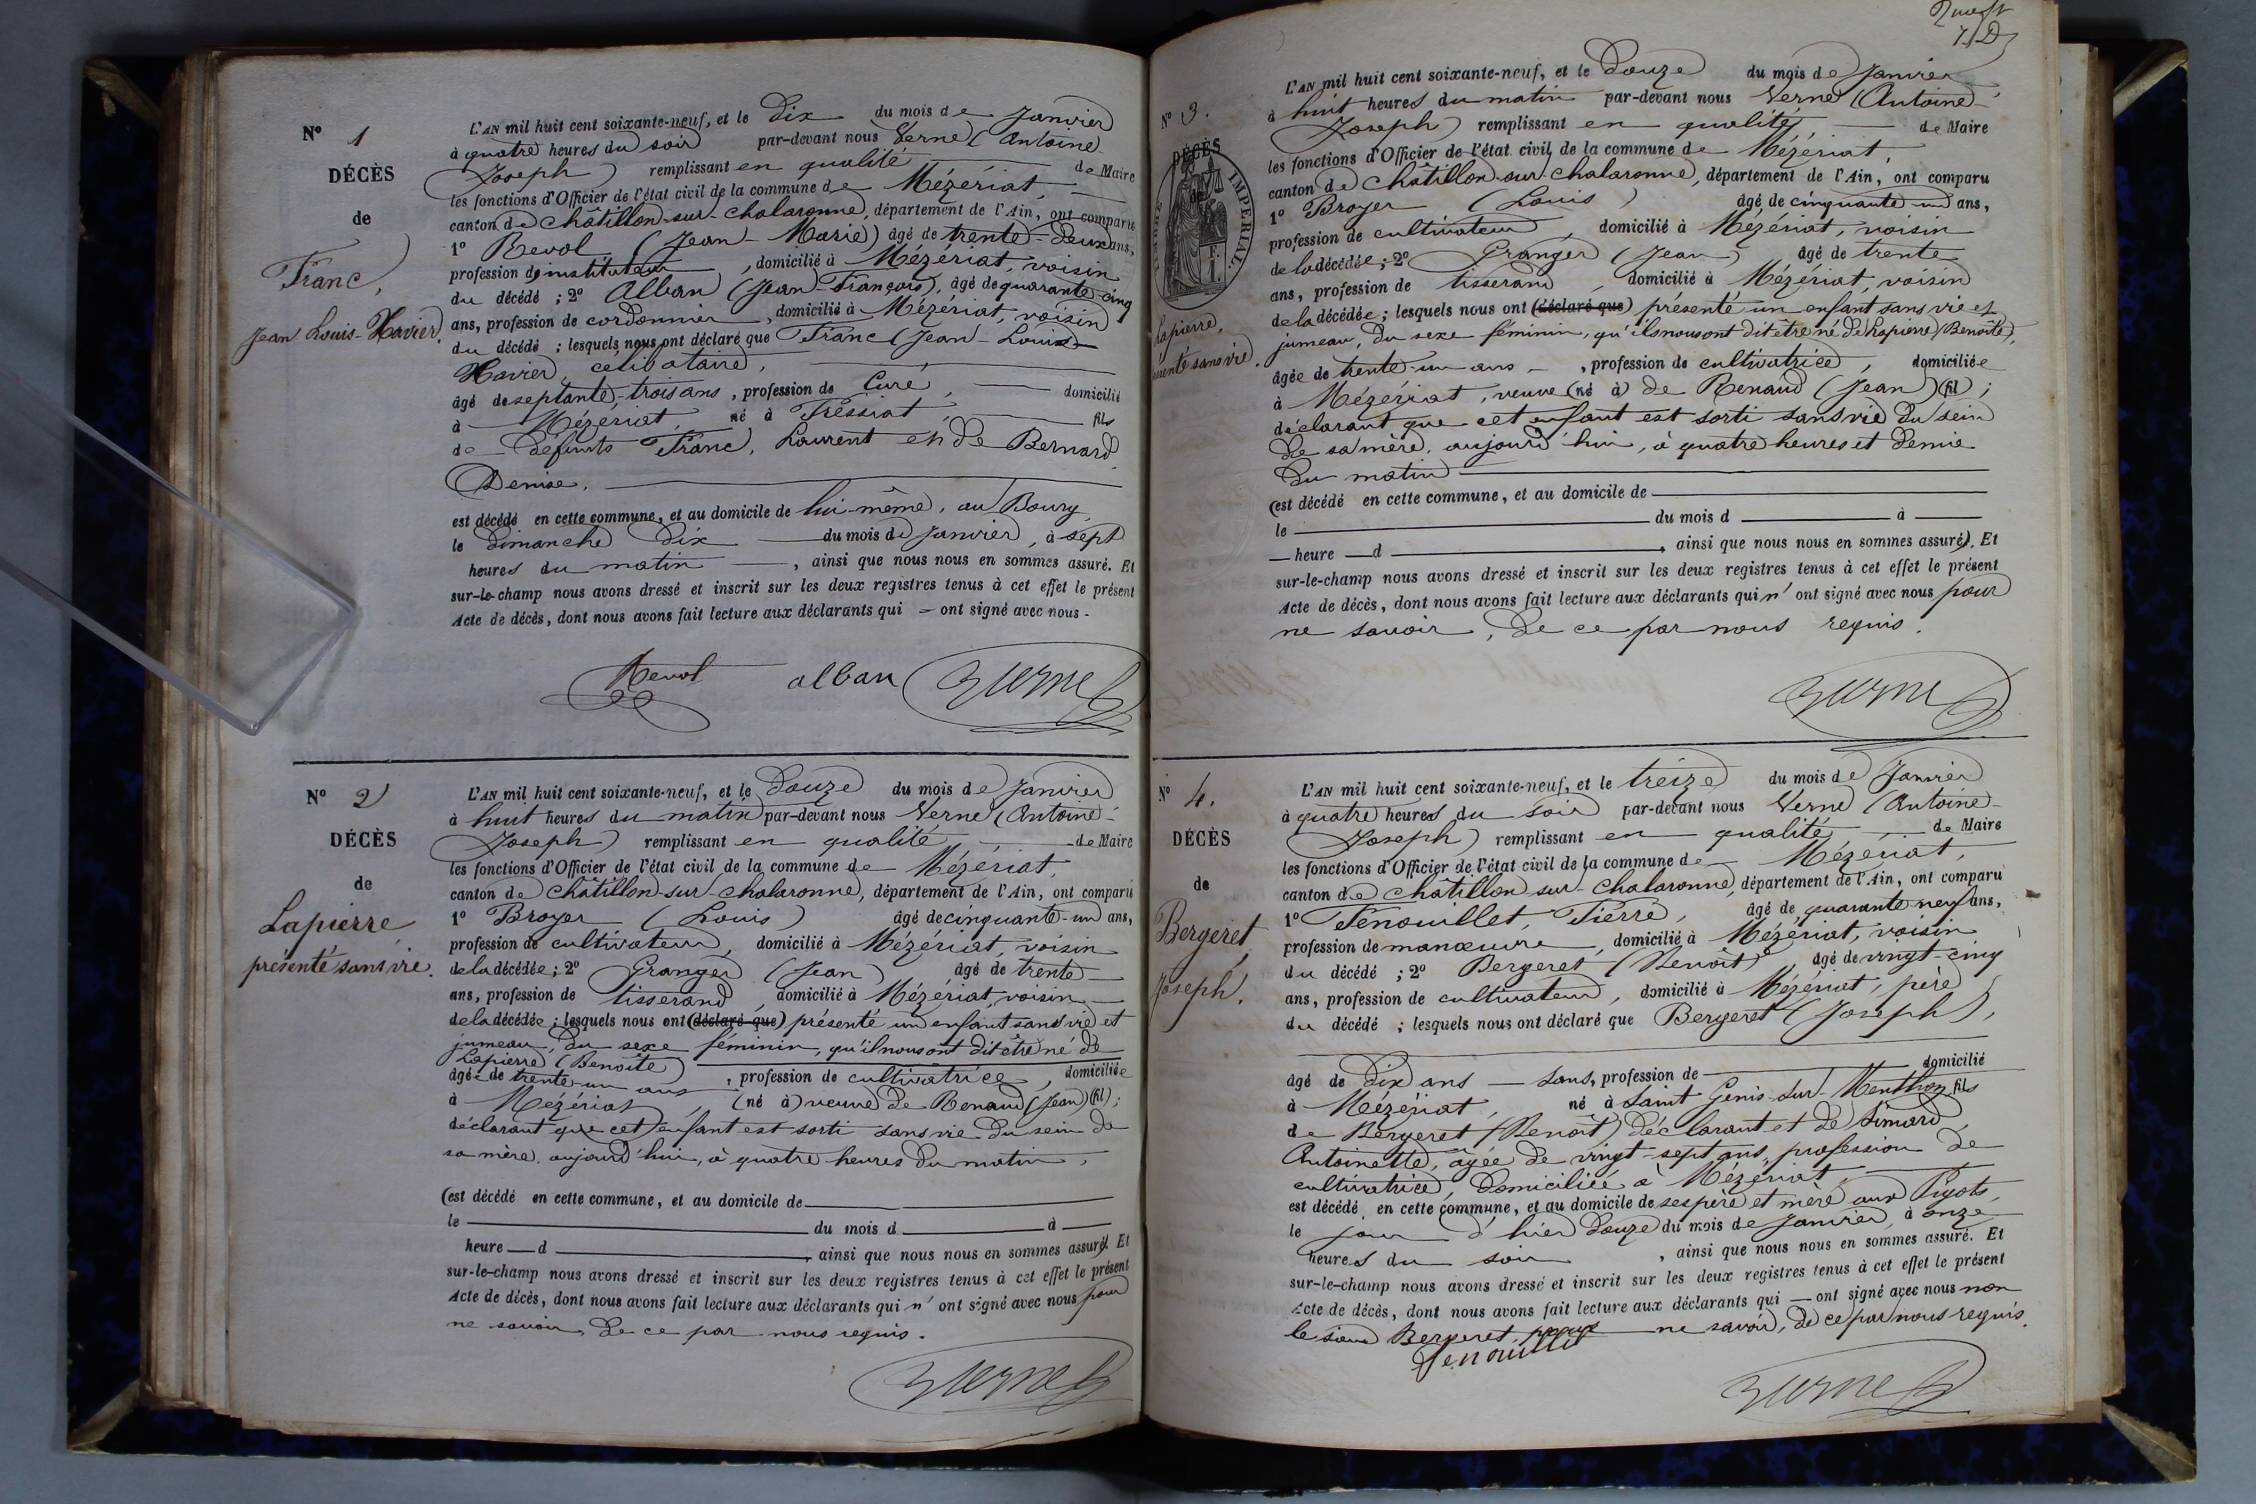 N° 1
DÉCÈS
de
Franc,
Jean Louis-Xavier.
L'AN mil huit cent soixante-neuf, et le Dix du mois de Janvier
à quatre heures du soir par-devant nous Verne (Antoine
Joseph) remplissant en qualité de Maire
les fonctions d'Officier de l'état civil de la commune de Mézériat,
canton de Châtillon-sur-Chalaronne, département de l'Ain, ont comparu
1° Revol (Jean-Marie) âgé de trente-deux ans,
profession d'instituteur, domicilié à Mézériat, voisin
du décédé ; 2° Alban (Jean-François), âgé de quarante-cinq
ans, profession de cordonnier, domicilié à Mézériat, voisin
du décédé ; lesquels nous ont déclaré que Franc (Jean-Louis-
Xavier, célibataire,
âgé de septante-trois ans, profession de Curé, domicilié
à Mézériat, né à Tressiat, fils
de défunts Franc, Laurent et de Bernard,
Denise,
est décédé en cette commune, et au domicile de lui-même, au Bourg,
le dimanche dix du mois de Janvier, à sept
heures du matin, ainsi que nous nous en sommes assuré. Et
sur-le-champ nous avons dressé et inscrit sur les deux registres tenus à cet effet le présent
Acte de décès, dont nous avons fait lecture aux déclarants qui ont signé avec nous.
Revol alban Verne
N° 2
DÉCÈS
de
Lapierre
présenté sans vie.
L'AN mil huit cent soixante-neuf, et le Douze du mois de Janvier
à huit heures du matin par-devant nous Verne (Antoine-
Joseph) remplissant en qualité de Maire
les fonctions d'Officier de l'état civil de la commune de Mézériat,
canton de Châtillon-sur-Chalaronne, département de l'Ain, ont comparu
1° Broyer (Louis) âgé de cinquante-un ans,
profession de cultivateur, domicilié à Mézériat, voisin
de la décédée ; 2° Granger (Jean) âgé de trente
ans, profession de tisserand, domicilié à Mézériat, voisin
de la décédée ; lesquels nous ont (déclaré que) présenté un enfant sans vie et
jumeau, du sexe féminin, qu'il nous ont dit être né de
Lapierre (Benoîte)
âgée de trente-un ans, profession de cultivatrice, domiciliée
à Mézériat, (né à) veuve de Renaud (Jean) (fil) ;
déclarant que cet enfant est sorti sans vie du sein de
sa mère, aujourd'hui, à quatre heures du matin,
(est décédé en cette commune, et au domicile de
le du mois d à
heure d, ainsi que nous nous en sommes assuré). Et
sur-le-champ nous avons dressé et inscrit sur les deux registres tenus à cet effet le présent
Acte de décès, dont nous avons fait lecture aux déclarants qui n'ont signé avec nous pour
ne savoir, de ce par nous requis.
Verne
N° 3.
DÉCÈS
de
TIMBRE IMPÉRIAL
Lapierre,
présenté sans vie.
L'AN mil huit cent soixante-neuf, et le Douze du mois de Janvier
à huit heures du matin par-devant nous Verne (Antoine-
Joseph) remplissant en qualité de Maire
les fonctions d'Officier de l'état civil de la commune de Mézériat,
canton de Châtillon-sur-Chalaronne, département de l'Ain, ont comparu
1° Broyer (Louis) âgé de cinquante-un ans,
profession de cultivateur, domicilié à Mézériat, voisin
de la décédée ; 2° Granger (Jean) âgé de trente
ans, profession de tisserand, domicilié à Mézériat, voisin
de la décédée ; lesquels nous ont (déclaré que) présenté un enfant sans vie et
jumeau, du sexe féminin, qu'ils nous ont dit être né de Lapierre (Benoîte),
âgée de trente-un ans, profession de cultivatrice, domiciliée
à Mézériat, veuve (né à) de Renaud (Jean) (fil) ;
déclarant que cet enfant est sorti sans vie du sein
de sa mère, aujourd'hui, à quatre heures et demie
du matin
(est décédé en cette commune, et au domicile de
le du mois d à
heure d, ainsi que nous nous en sommes assuré). Et
sur-le-champ nous avons dressé et inscrit sur les deux registres tenus à cet effet le présent
Acte de décès, dont nous avons fait lecture aux déclarants qui n'ont signé avec nous pour
ne savoir, de ce par nous requis.
Verne
N° 4.
DÉCÈS
de
Bergeret,
Joseph.
L'AN mil huit cent soixante-neuf, et le treize du mois de Janvier
à quatre heures du soir par-devant nous Verne (Antoine-
Joseph) remplissant en qualité de Maire
les fonctions d'Officier de l'état civil de la commune de Mézériat,
canton de Châtillon-sur-Chalaronne, département de l'Ain, ont comparu
1° Fenouillet, Pierre, âgé de quarante-neuf ans,
profession de manœuvre, domicilié à Mézériat, voisin
du décédé ; 2° Bergeret (Benoît), âgé de vingt-cinq
ans, profession de cultivateur, domicilié à Mézériat, père
du décédé ; lesquels nous ont déclaré que Bergeret (Joseph),
âgé de Dix ans sans profession de domicilié
à Mézériat, né à Saint Genis-sur-Menthon, fils
de Bergeret (Benoît) déclarant et de Simard,
Antoinette, âgée de vingt-sept ans, profession de
cultivatrice, domiciliée à Mézériat,
est décédé en cette commune, et au domicile de ses père et mère aux Pigots,
le jour d'hier douze du mois de Janvier, à onze
heures du soir, ainsi que nous nous en sommes assuré. Et
sur-le-champ nous avons dressé et inscrit sur les deux registres tenus à cet effet le présent
Acte de décès, dont nous avons fait lecture aux déclarants qui ont signé avec nous non
le sieur Bergeret, pour ne savoir, de ce par nous requis.
Fenouillet
Verne